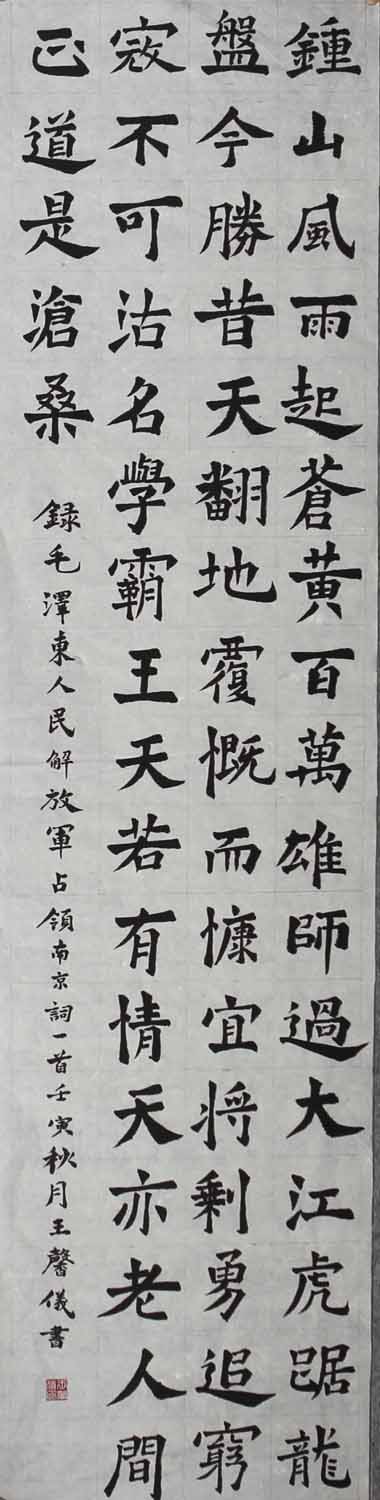 鍾山風雨起蒼黃百萬雄師過大江虎踞龍
盤今勝昔天翻地覆慨而慷宜將剩勇追窮
寇不可沽名學霸王天若有情天亦老人間
正道是滄桑
録毛澤東人民解放軍占領南京詞一首壬寅秋月王馨儀書